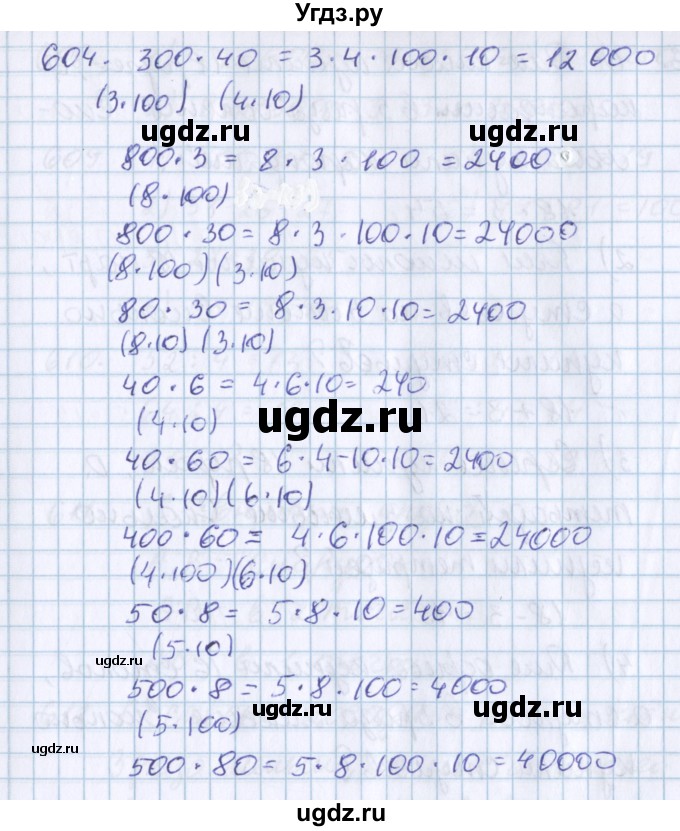 Угдз.ру
604. 300 · 40 = 3 · 4 · 100 · 10 = 12 000
(3·100) (4·10)
ugdz.ru ugdz.ru
800 · 3 = 8 · 3 · 100 = 2400
(8 · 100)
800 · 30 = 8 · 3 · 100 · 10 = 24000
(8·100)(3·10)
80 · 30 = 8 · 3 · 10 · 10 = 2400
(8·10) (3·10)
40 · 6 = 4 · 6 · 10 = 240
(4·10)
ugdz.ru
40 · 60 = 6 · 4 - 10 · 10 = 2400
(4·10)(6·10)
400 · 60 = 4 · 6 · 100 · 10 = 24000
(4·100)(6·10)
50 · 8 = 5 · 8 · 10 = 400
(5·10)
ugdz.ru
500 · 8 = 5 · 8 · 100 = 4000
ugdz.ru ugdz.ru
(5·100)
ugdz.ru
500 · 80 = 5 · 8 · 100 · 10 = 40000
ugdz.ru
ugdz.ru